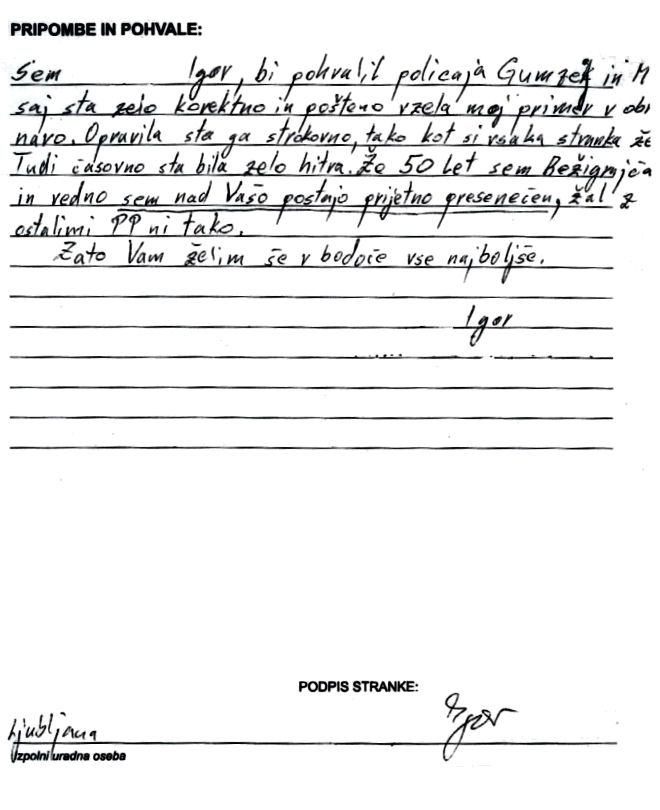 PRIPOMBE IN POHVALE:
Sem Igor, bi pohvalil policaja Gumzej in M
saj sta zelo korektno in pošteno vzela moj primer v obr
navo. Opravila sta ga strokovno, tako kot si vsaka stranka že
Tudi časovno sta bila zelo hitra. Že 50 let sem Bežigrajča
in vedno sem nad Vašo postajo prijetno presenečen, žal z
ostalimi PP ni tako.
Zato Vam želim še v bodoče vse najboljše.
Igor
PODPIS STRANKE:
Ljubljana
Igor
Izpolni uradna oseba